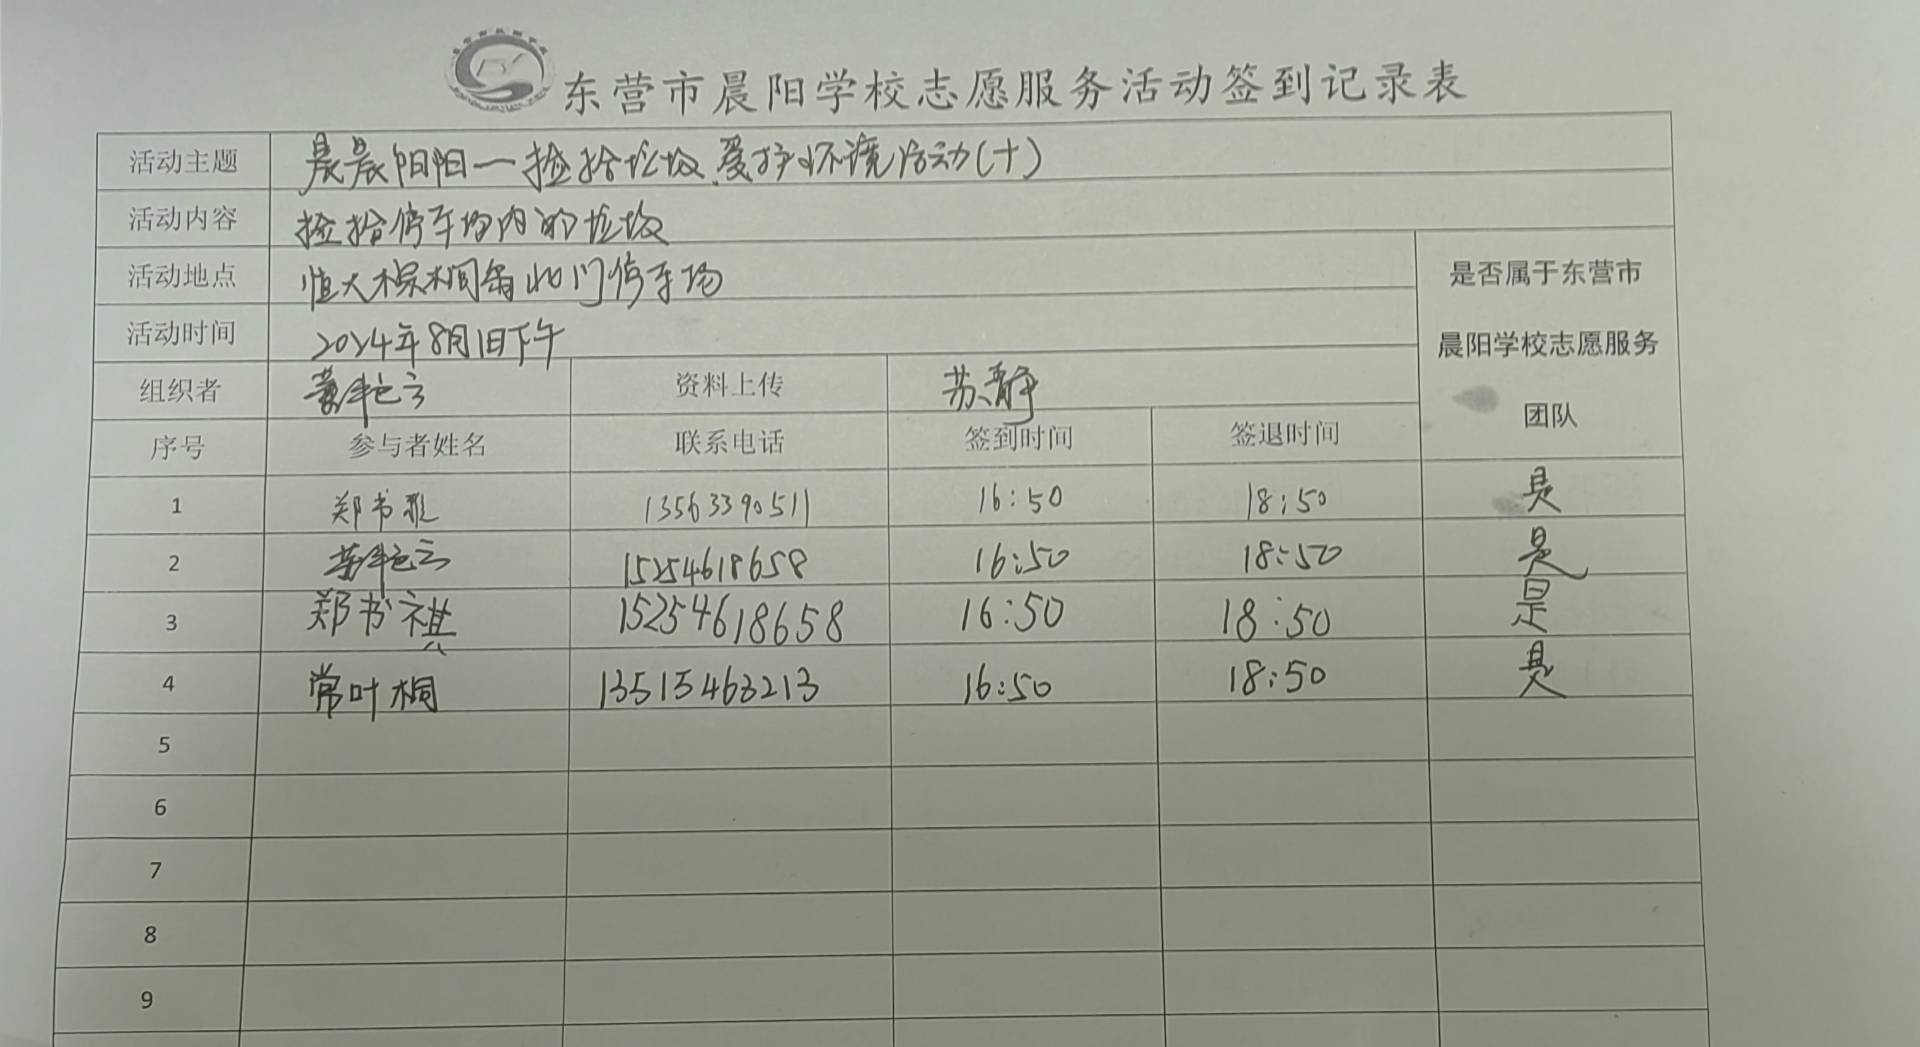 东营市晨阳学校志愿服务活动签到记录表
活动主题 晨晨阳阳一捡拾垃圾、爱护环境活动(十)
活动内容 捡拾停车场内的垃圾
活动地点 恒大棕榈岛北门停车场
活动时间 2024年8月1日下午
是否属于东营市
晨阳学校志愿服务
团队
组织者 资料上传 苏静
序号 参与者姓名 联系电话 签到时间 签退时间
1 郑书雅 13563390511 16:50 18:50 是
2 15254618658 16:50 18:50 是
3 郑书祺 15254618658 16:50 18:50 是
4 常叶桐 13515463213 16:50 18:50 是
5
6
7
8
9